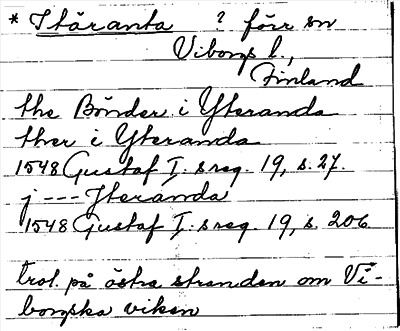 * Itäranta ? förr sn
Viborgs l.,
Finland
the Bönder i Yteranda
ther i Yteranda
1548 Gustaf I.s reg. 19, s. 27.
j --- Iteranda
1548 Gustaf I.s reg. 19, s. 206
trol. på östra stranden om Vi-
borgska viken